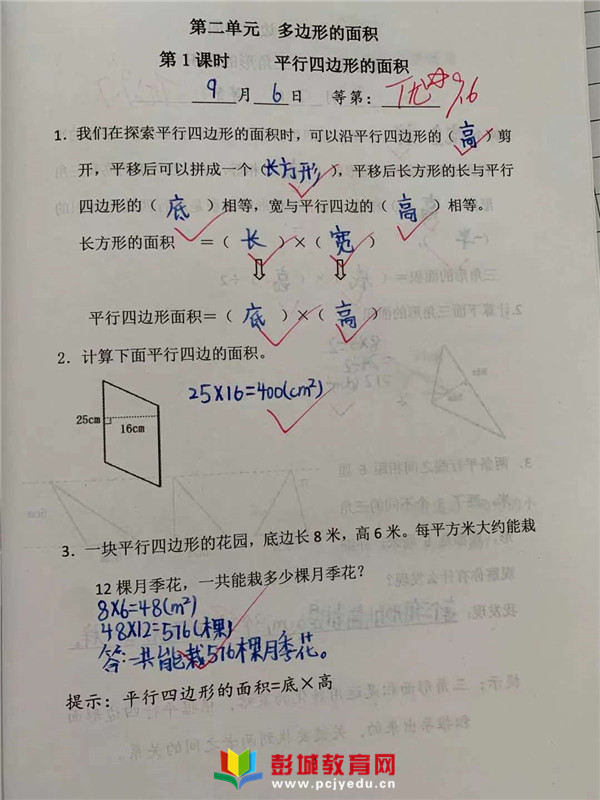 第二单元 多边形的面积
第1课时 平行四边形的面积
9月6日 等第：优 9.6
1. 我们在探索平行四边形的面积时，可以沿平行四边形的（高）剪
开，平移后可以拼成一个（长方形），平移后长方形的长与平行
四边形的（底）相等，宽与平行四边的（高）相等。
长方形的面积 ＝（长）×（宽）
平行四边形面积＝（底）×（高）
2. 计算下面平行四边的面积。
25×16=400(cm²)
25cm
16cm
3. 一块平行四边形的花园，底边长8米，高6米。每平方米大约能栽
12棵月季花，一共能栽多少棵月季花？
8×6=48(m²)
48×12=576(棵)
答:一共能栽576棵月季花。
提示：平行四边形的面积=底×高
彭城教育网
www.pcjyedu.cn